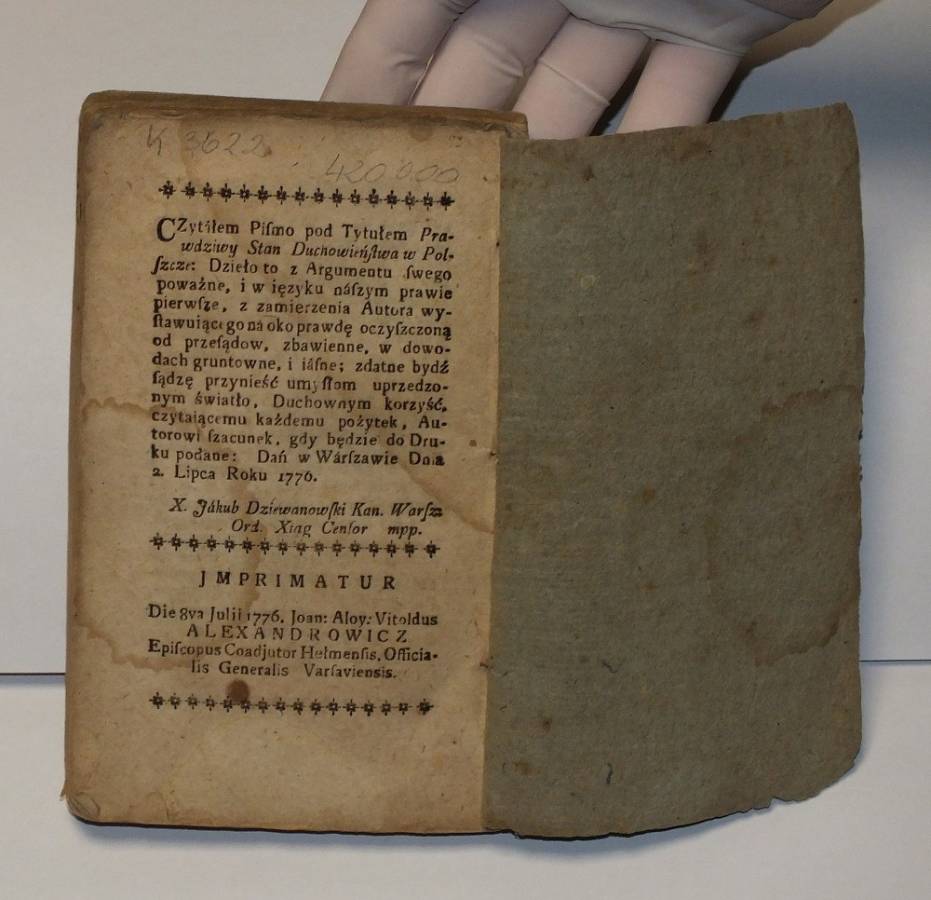 K 3622
420000
CZytáłem Piſmo pod Tytułem Pra-
wdziwy Stan Duchowieńſtwa w Pol-
ſzcze: Dzieło to z Argumentu ſwego
poważne, i w ięzyku náſzym prawie
pierwſze, z zamierzenia Autora wy-
ſtawuiącego na oko prawdę oczyſzczoną
od przeſądow, zbawienne, w dowo-
dach gruntowne, i iáſne; zdatne bydź
ſądzę przynieść umyſłom uprzedzo-
nym światło, Duchownym korzyść,
czytaiącemu każdemu pożytek, Au-
torowi ſzacunek, gdy będzie do Dru-
ku podane: Dań w Wárſzawie Dnia
2. Lipca Roku 1776.
X. Jákub Dziewanowſki Kan. Warſza
Ord. Xiąg Cenſor mpp.
JMPRIMATUR
Die 8va Julii 1776. Joan: Aloy: Vitoldus
ALEXANDROWICZ
Epiſcopus Coadjutor Hełmenſis, Officia-
lis Generalis Varſavienſis.